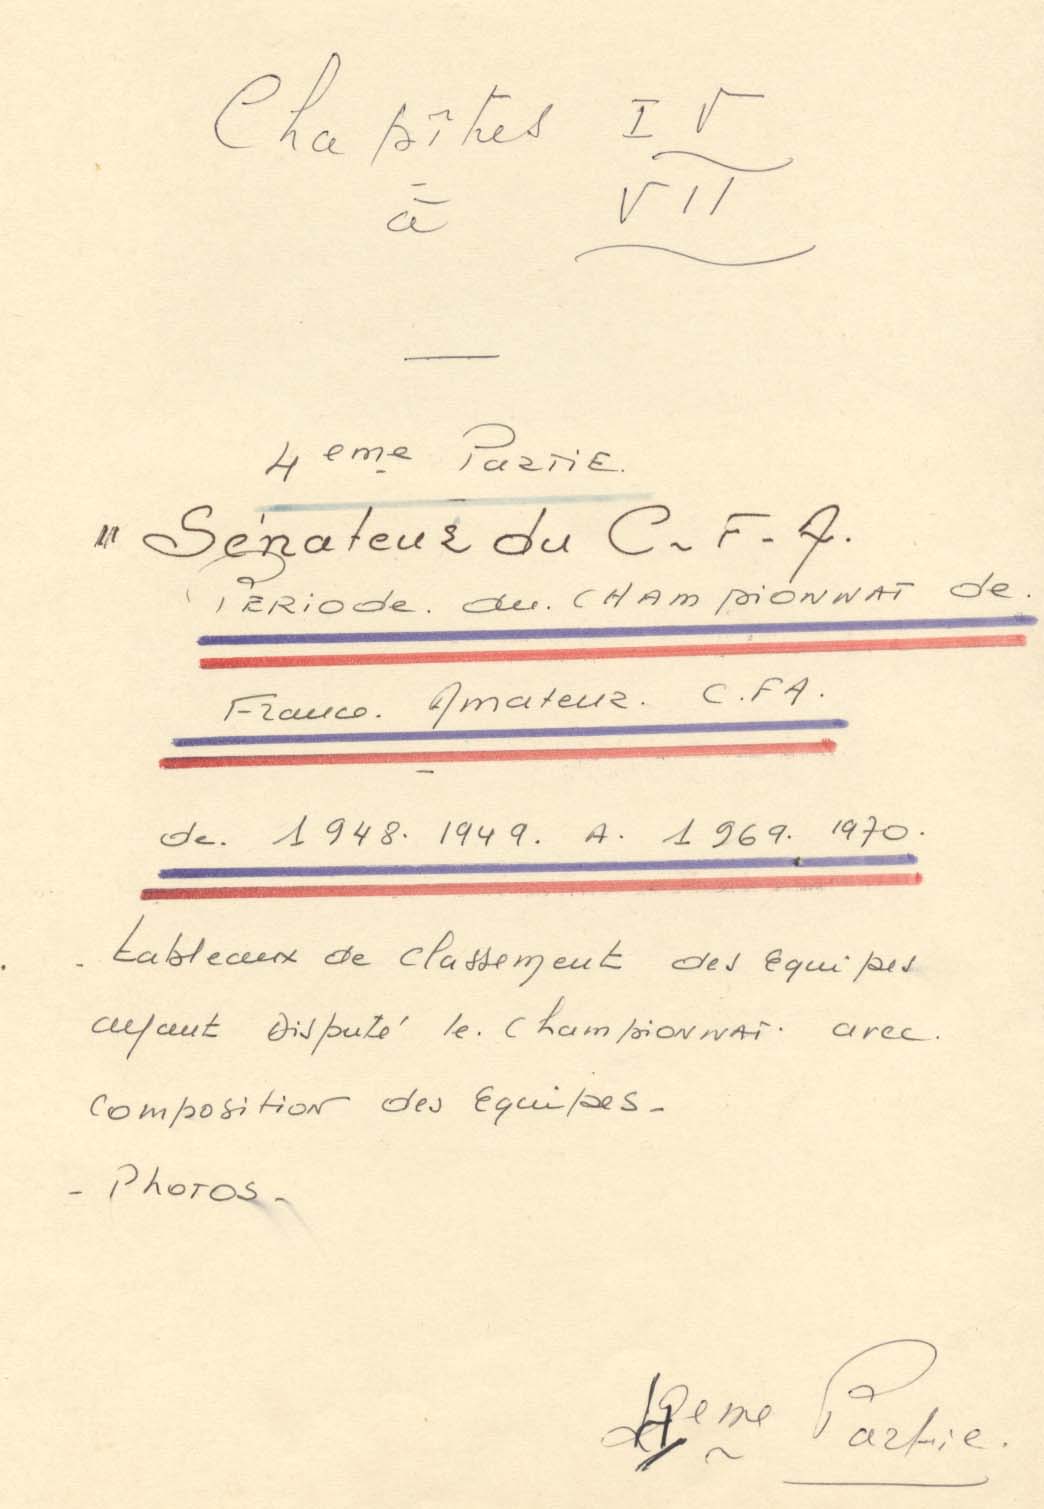 Chapîtres IV
à VII
4 eme Partie.
" Sénateur du C. F. A.
PERIODE. du. CHAMPIONNAT de.
France. Amateur. C.FA.
de. 1948. 1949. A. 1969. 1970.
- tableaux de classement des equipes
ayant disputé le. championnat. avec.
composition des equipes-
- Photos-
4eme Partie.